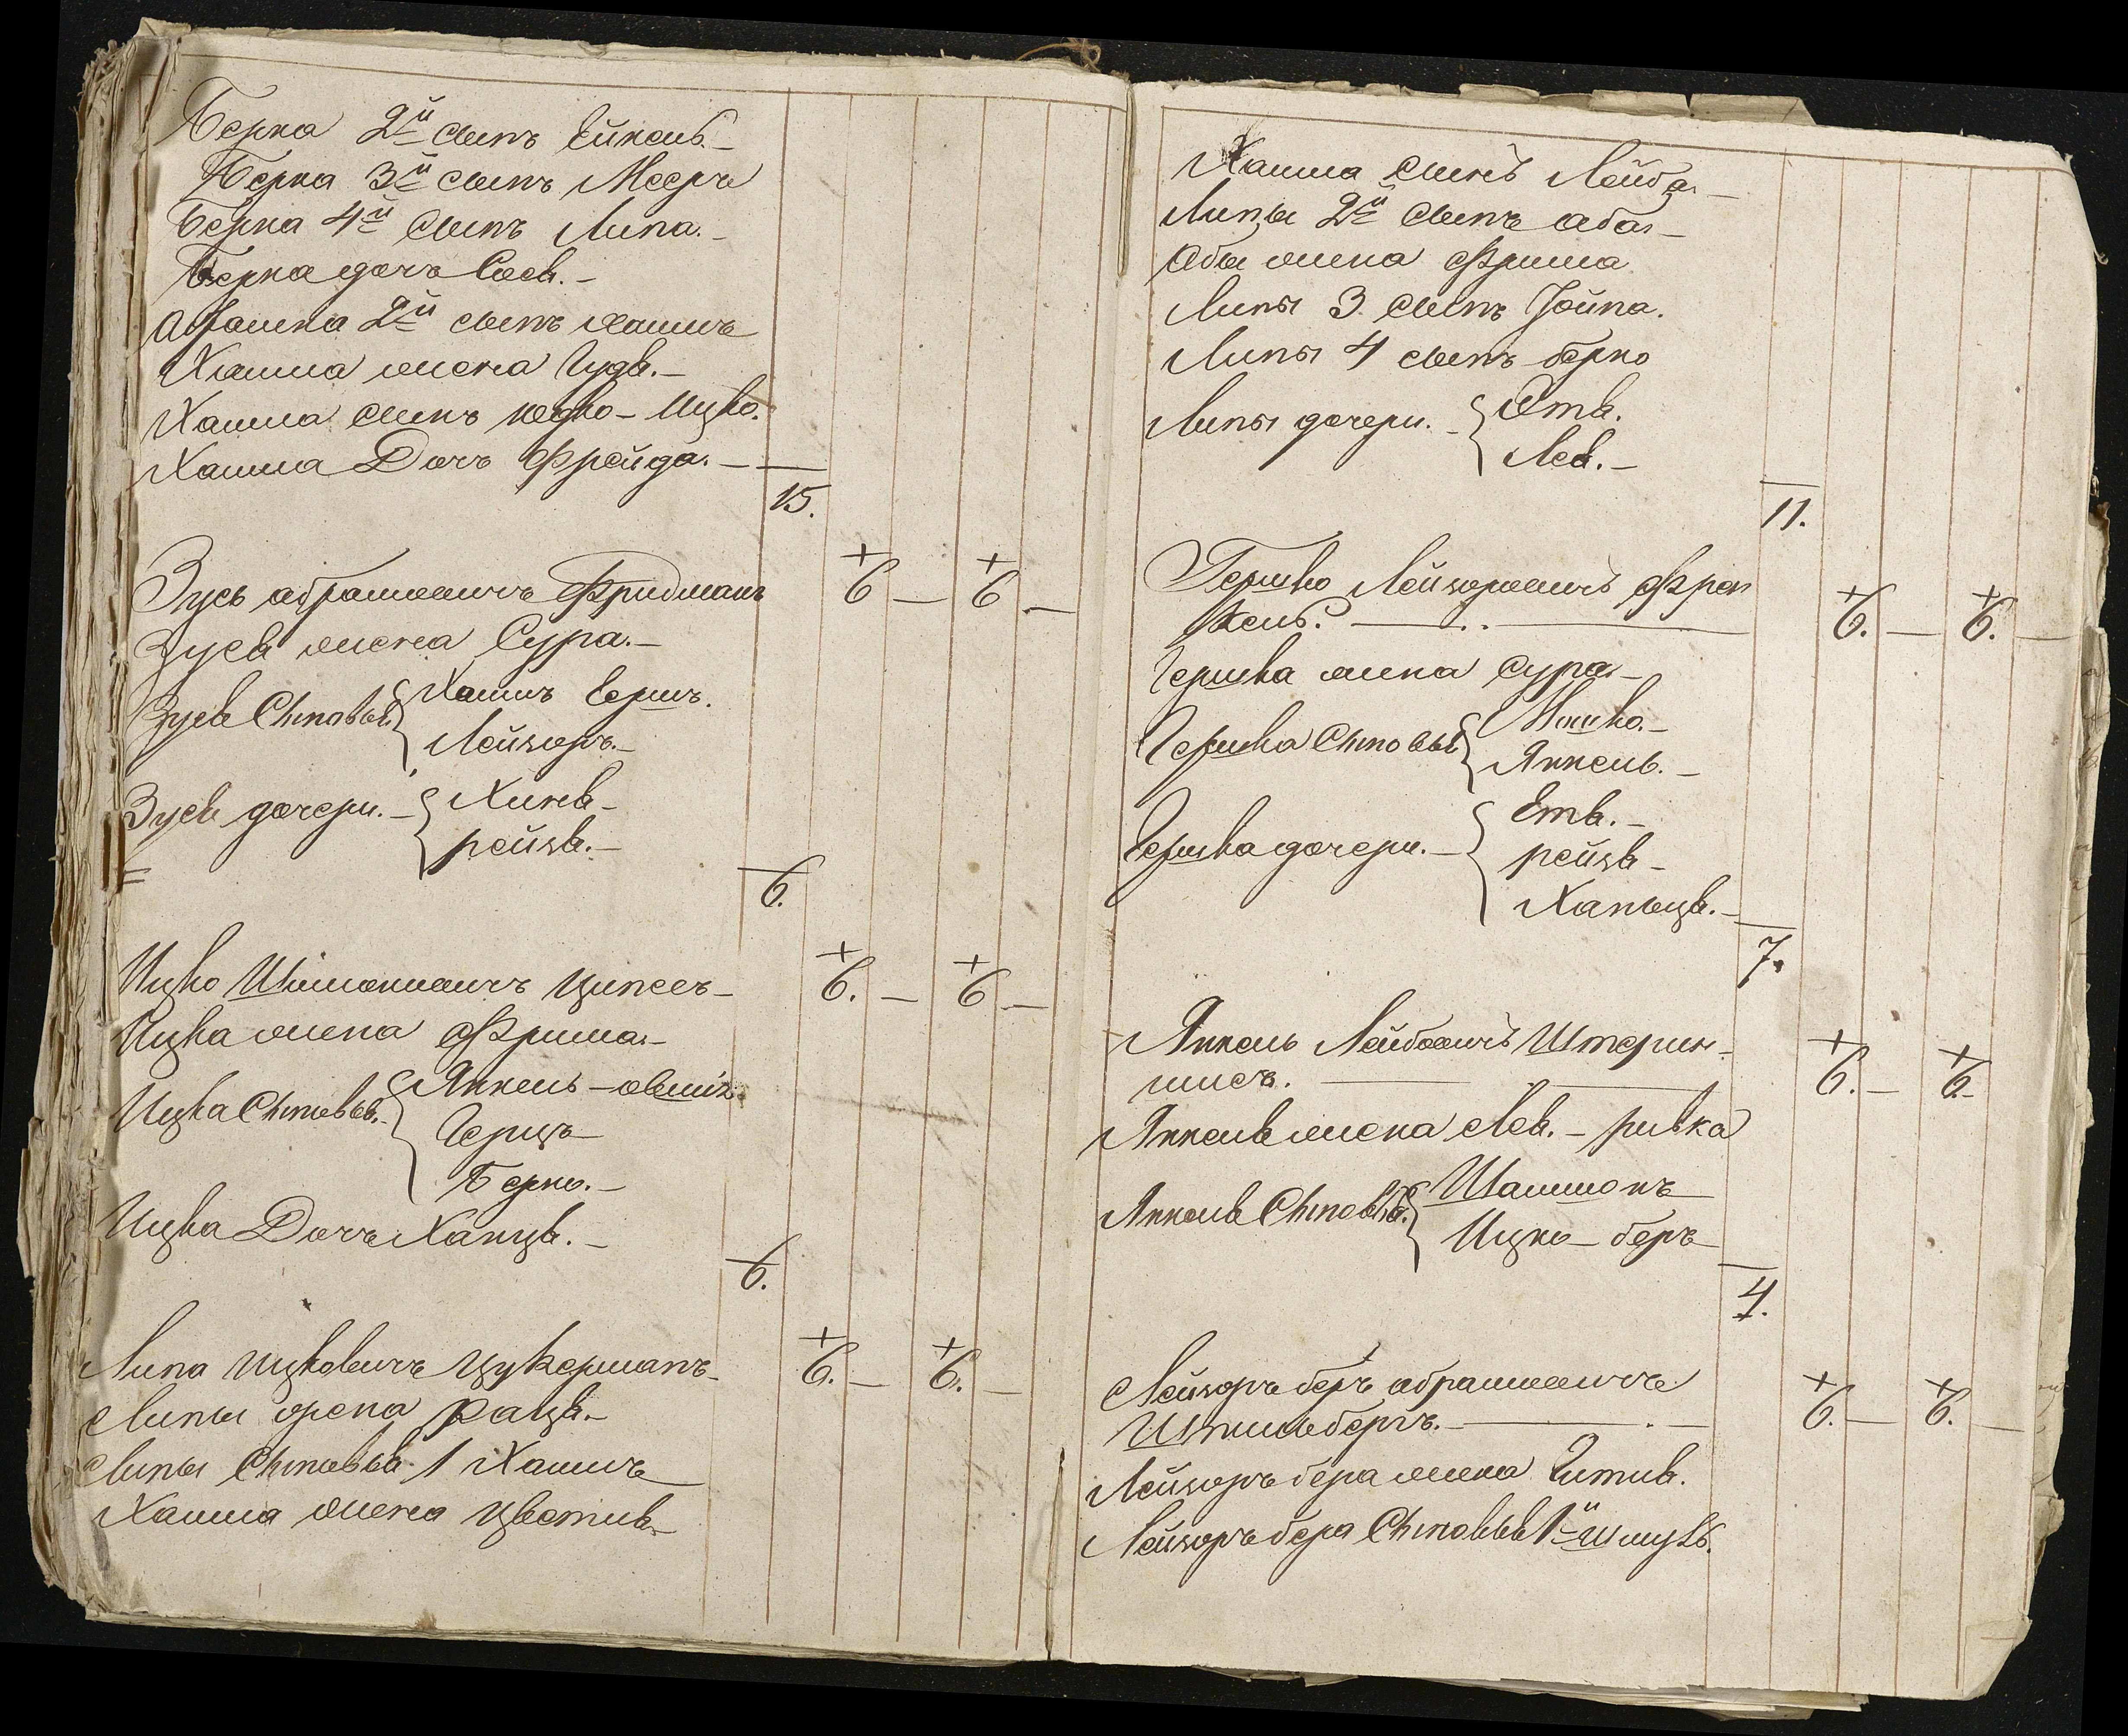 Берка 2й сынъ Ейкель.—
Берка 3й сынъ Мееръ
Берка 4й сынъ Липа.—
Берка дочь Сося.—
Абрамка 2й сынъ хаимъ
Хаима жена Гудя.—
Хаима сынъ юдко-Ицко.
Хаима Дочь Фрейда.—
15.
Зусь абрамовичъ Фридманъ 6 — 6 —
Зуся жена Сура.—
Зуся Сыновья { Хаимъ Гершъ.
Лейзоръ.—
Зуся дочери.— { Хиня—
рейзя.—
6.
Ицко Шимоновичъ Ципесъ— 6. — 6 —
Ицка жена Фрима.—
Ицка Сыновья.— { Янкель-овшія
Герцъ—
Берко.—
Ицка Дочь Ханця.—
6.
Липа ицковичъ Цукерманъ— 6. — 6. —
Липы жена Рация.—
Липы Сыновья 1 Хаимъ
Хаима жена Цветля—
Хаима сынъ Лейба—
Липы 2й сынъ аба—
Абы жена Фрима
Липы 3. сынъ Йойна.
Липы 4 сынъ берко
Липы дочери.— { Этя.
Лея.—
11.
Гершко Лейзоровичъ Френ
кель. — 6. — 6. —
Гершка жена Сура—
Гершка Сыновья { Мошко.—
Янкель.—
Гершка дочери.— { Етя.—
рейзя—
Ханьця.—
7.
Янкель Лейбовичъ Штерин-
шисъ. — 6. — 6.—
Янкеля жена Лея.— ривка
Янкеля Сыновья. { Шаммонъ
Ицко-беръ
4.
Лейзоръ беръ абрамовичъ
Штильбергъ. — 6. — 6. —
Лейзоръ бера жена Гитля.
Лейзоръ бера Сыновья 1й шмуль.